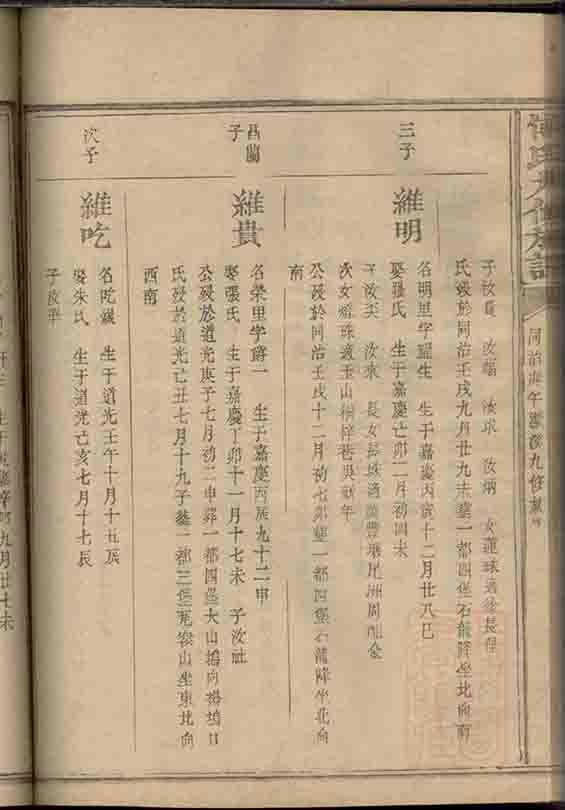 氏九修族譜
同治 午 九修
子汝貴 汝福 汝求 汝炳 女蓮珠適徐長俚
氏歿於同治壬戌九月廿九未塟一都四堡石龍降坐北向南
三子
維明
名明里字耀生 生于嘉慶丙寅十二月廿八巳
娶張氏 生于嘉慶 卯二月初四未
子汝尖 汝求 長女 珠適廣豐 尾洲周
次女 珠適玉山 梓巷吳 年
公歿於同治壬戌十二月初七卯塟一都四堡石龍降坐北向
南
昌蘭
子
維貴
名榮里字爵一 生于嘉慶丙辰九十二申
娶張氏 生于嘉慶丁卯十一月十七未 子汝
公歿於道光庚子七月初二申葬一都四堡大山塢向楊塢口
氏歿於道光己丑七月十九子塟一都三堡 山坐東北向
西南
次子
維吃
名吃 生于道光壬午十月十五辰
娶朱氏 生于道光 亥七月十七辰
子汝